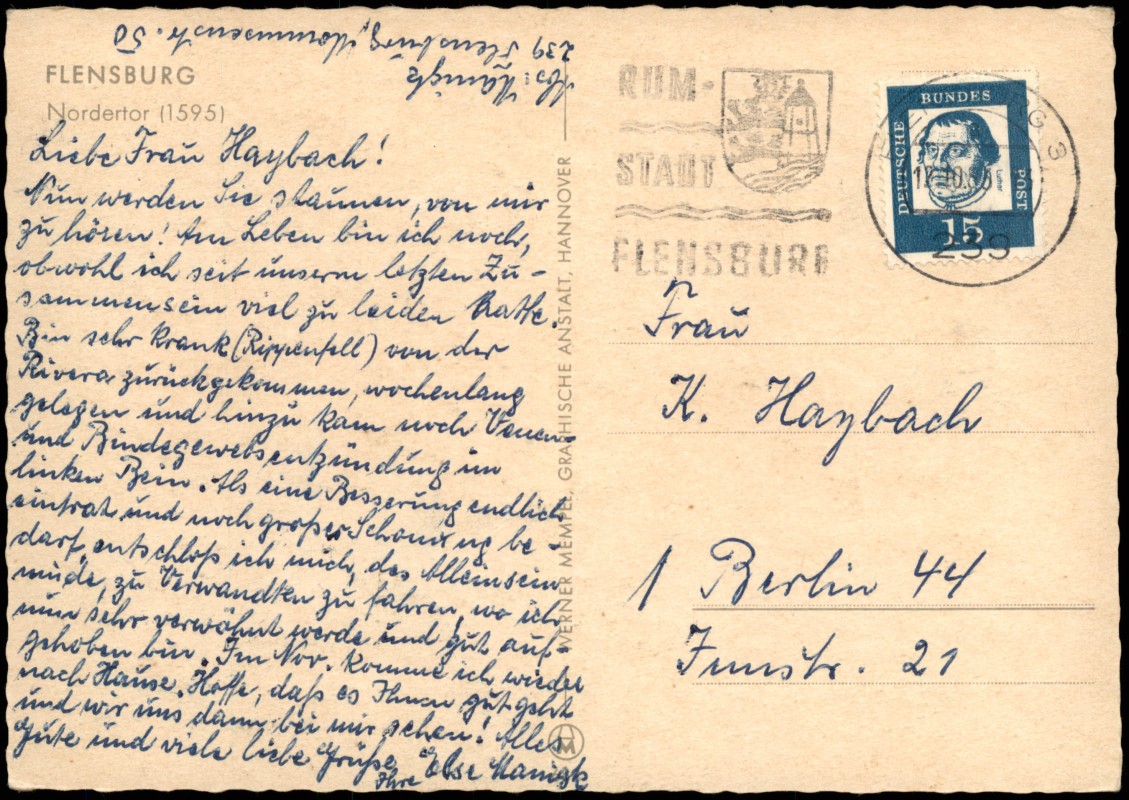 Abs: Manigk
239 Flensburg, Mommsenstr. 50
FLENSBURG
Nordertor (1595)
Liebe Frau Haybach!
Nun werden Sie staunen, von mir
zu hören! Am Leben bin ich noch,
obwohl ich seit unserm letzten Zu-
sammensein viel zu leiden hatte.
Bin sehr krank (Rippenfell) von der
Rivera zurückgekommen, wochenlang
gelegen und hinzu kam noch Venen-
und Bindegewebsentzündung im
linken Bein. Als eine Besserung endlich
eintrat und noch großer Schonung be-
darf, entschloß ich mich, des Alleinseins
müde, zu Verwandten zu fahren, wo ich
nun sehr verwöhnt werde und gut auf-
gehoben bin. Im Nov. komme ich wieder
nach Hause. Hoffe, daß es Ihnen gut geht
und wir uns dann bei mir sehen! Alles
Gute und viele liebe Grüße
Ihre Else Manigk
WERNER MEMPEL, GRAPHISCHE ANSTALT, HANNOVER
RUM-
STADT
FLENSBURG
DEUTSCHE
BUNDES
POST
Luther
15
239
Frau
K. Haybach
1 Berlin 44
Innstr. 21